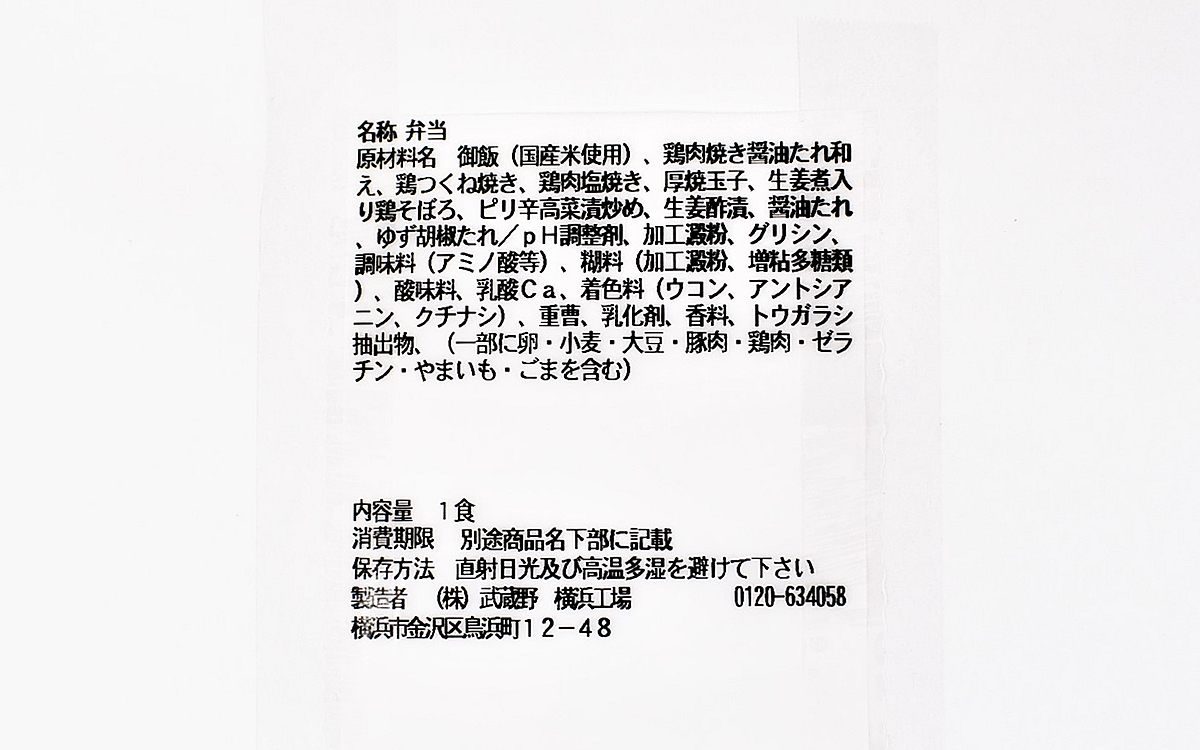 名称 弁当
原材料名　御飯（国産米使用）、鶏肉焼き醤油たれ和
え、鶏つくね焼き、鶏肉塩焼き、厚焼玉子、生姜煮入
り鶏そぼろ、ピリ辛高菜漬炒め、生姜酢漬、醤油たれ
、ゆず胡椒たれ／ｐＨ調整剤、加工澱粉、グリシン、
調味料（アミノ酸等）、糊料（加工澱粉、増粘多糖類
）、酸味料、乳酸Ｃａ、着色料（ウコン、アントシア
ニン、クチナシ）、重曹、乳化剤、香料、トウガラシ
抽出物、（一部に卵・小麦・大豆・豚肉・鶏肉・ゼラ
チン・やまいも・ごまを含む）
内容量　１食
消費期限　別途商品名下部に記載
保存方法　直射日光及び高温多湿を避けて下さい
製造者　（株）武蔵野　横浜工場　0120-634058
横浜市金沢区鳥浜町１２－４８